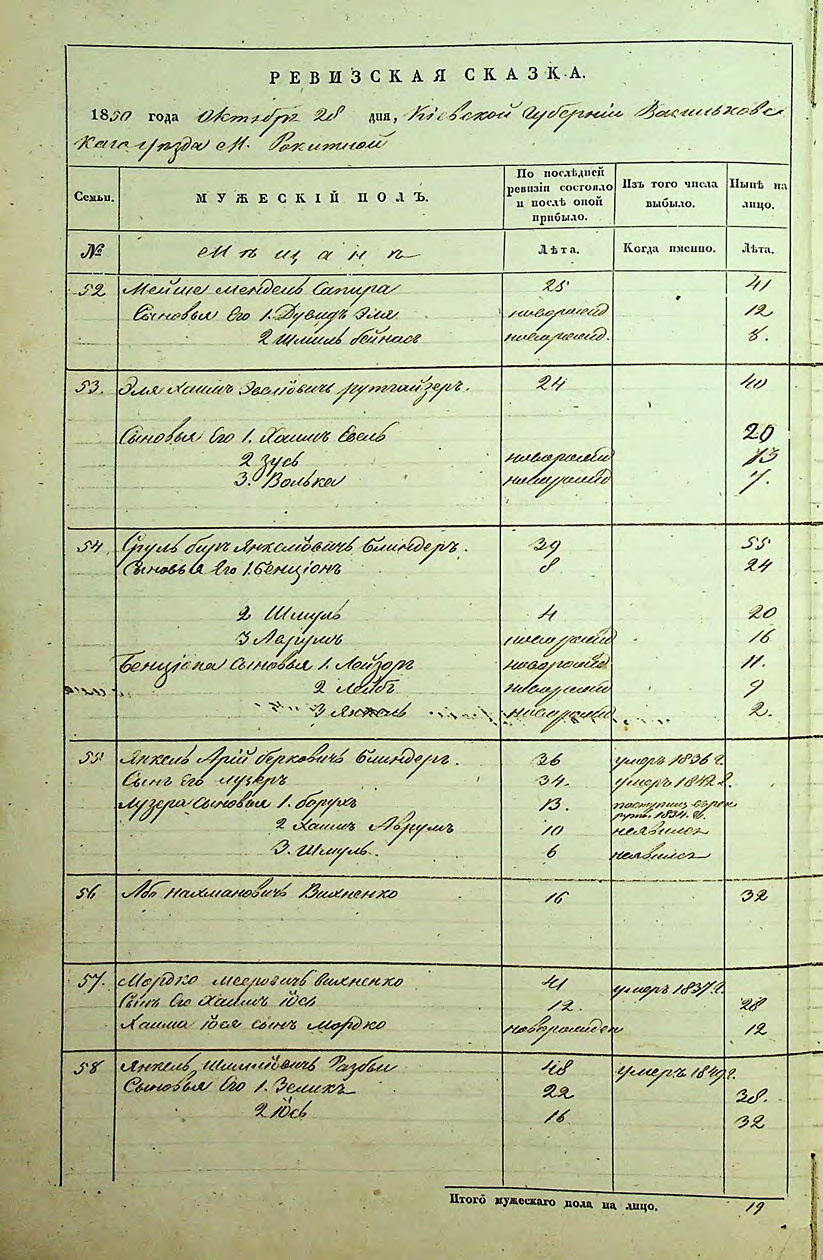 РЕВИЗСКАЯ СКАЗКА.
1850 года Октября 28 дня, Кіевской Губерніи Васильковс
каго уѣзда М. Рокитной
Семьи. МУЖЕСКІЙ ПОЛЪ. По послѣдней ревизіи состояло и послѣ оной прибыло. Изъ того числа выбыло. Нынѣ на лицо.
№ Мѣщанъ Лѣта. Когда именно. Лѣта.
52 Мейше Мендель Сапира 25 41
Сыновья Его 1. Дувидъ Эля новорожд 12
2 Шмиль Бейнасъ новорожд. 8.
53. Эля Хаимъ Эвслювичъ Рутгайзеръ. 24 40
Сыновья Его 1. Хаимъ Евель 20
2 Зусь новорожд 13
3. Волька новорожд 7.
54 Сруль Беръ Янкелювичъ Блиндеръ. 39 55
Сыновья Его 1. Бенціонъ 8 24
2 Шмуль 4 20
3 Аврумъ новорожд 16
Бенціона Сыновья 1. Лейзоръ новорожд 11.
2 Лейбъ новорожд 9
3 Янкель новорожд 2.
55 Янкель Арій Берковичъ Блиндеръ. 36 умеръ 1836 г.
Сынъ Его Лузеръ 34. умеръ 1842 г.
Лузера Сыновья 1. Борухъ 13. поступилъ в рек
рут. 1834. г.
2 Хаимъ Аврумъ 10 неявился
3. Шмуль. 6 неявился
56 Або Нахмановичъ Вихненко 16 32
57. Мордко Мееровичъ Вихненко 41 умеръ 1837 г.
Сынъ Его Хаимъ Іось 12. 28
Хаима Іося сынъ Мордко новорожден 12
58 Янкель Шмилювичъ Разбы 48 умеръ 1849 г.
Сыновья Его 1. Зеликъ 22 38.
2 Іось 16 32
Итого мужескаго пола на лицо. 19